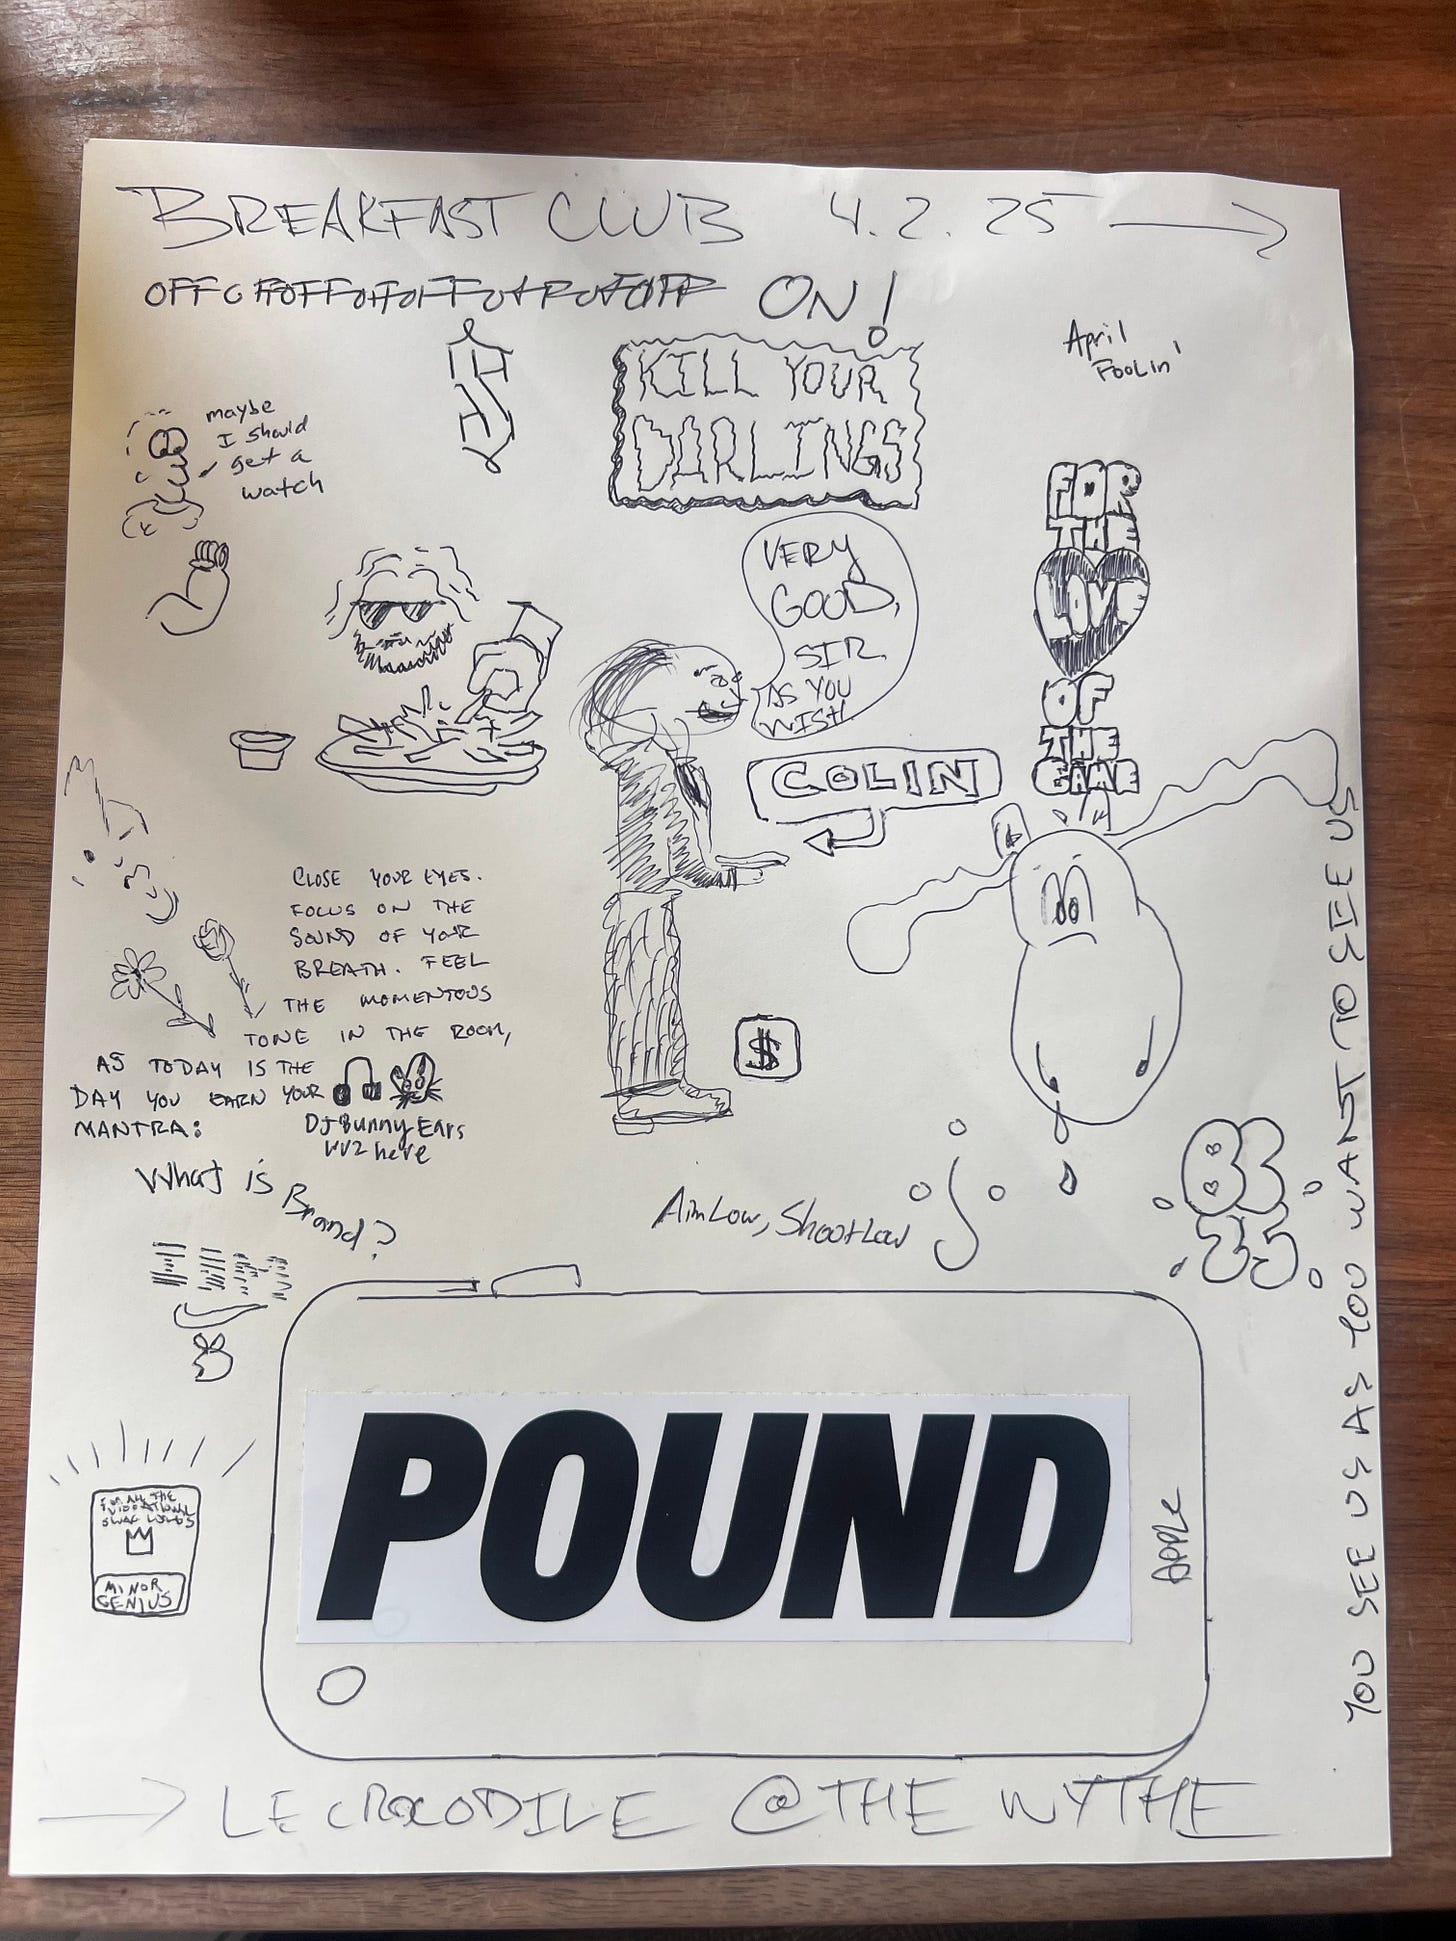 BREAKFAST CLUB 4.2.25
ON!
April
Foolin'
KILL YOUR
DARLINGS
maybe
I should
get a
watch
FOR
THE
LOVE
OF
THE
GAME
VERY
GOOD,
SIR
AS YOU
WISH.
COLIN
CLOSE YOUR EYES.
FOCUS ON THE
SOUND OF YOUR
BREATH. FEEL
THE MOMENTOUS
TONE IN THE ROOM,
AS TODAY IS THE
DAY YOU EARN YOUR
MANTRA:
DJ Bunny Ears
wuz here
$
What is Brand?
Aim Low, Shoot Low
BC
25
YOU SEE US AS YOU WANT TO SEE US
POUND
APPLE
FOR ALL THE
SWAG
MINOR
GENIUS
LE CROCODILE @ THE WYTHE